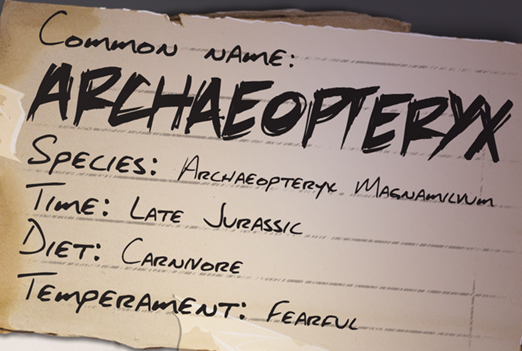 Common name:
ARCHAEOPTERYX
Species: Archaeopteryx Magnamilvum
Time: Late Jurassic
Diet: Carnivore
Temperament: Fearful